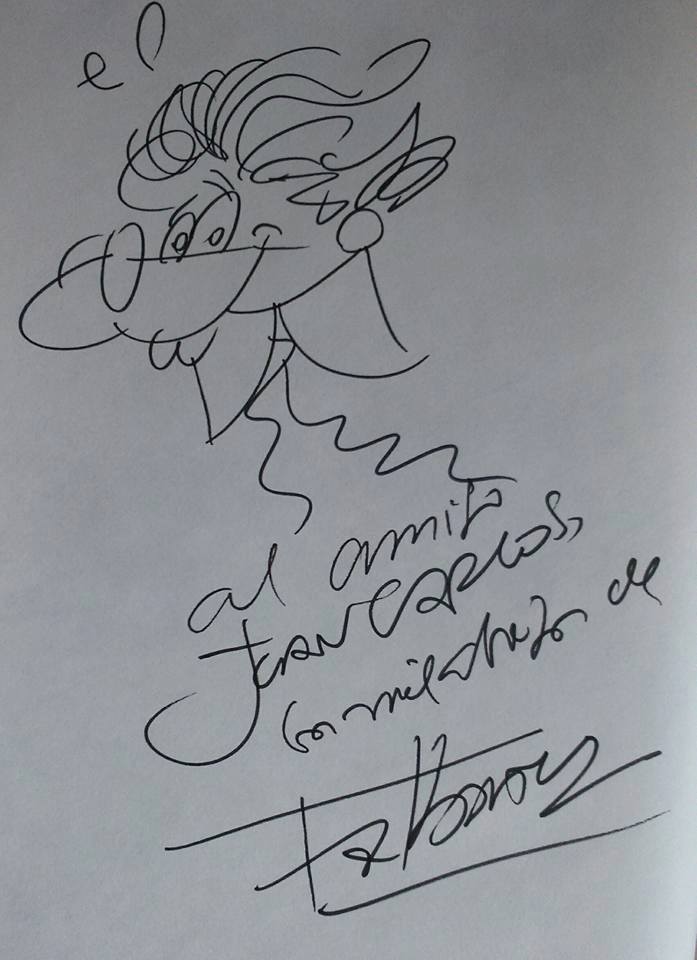 al amigo
JUAN CARLOS,
con mil abrazos de